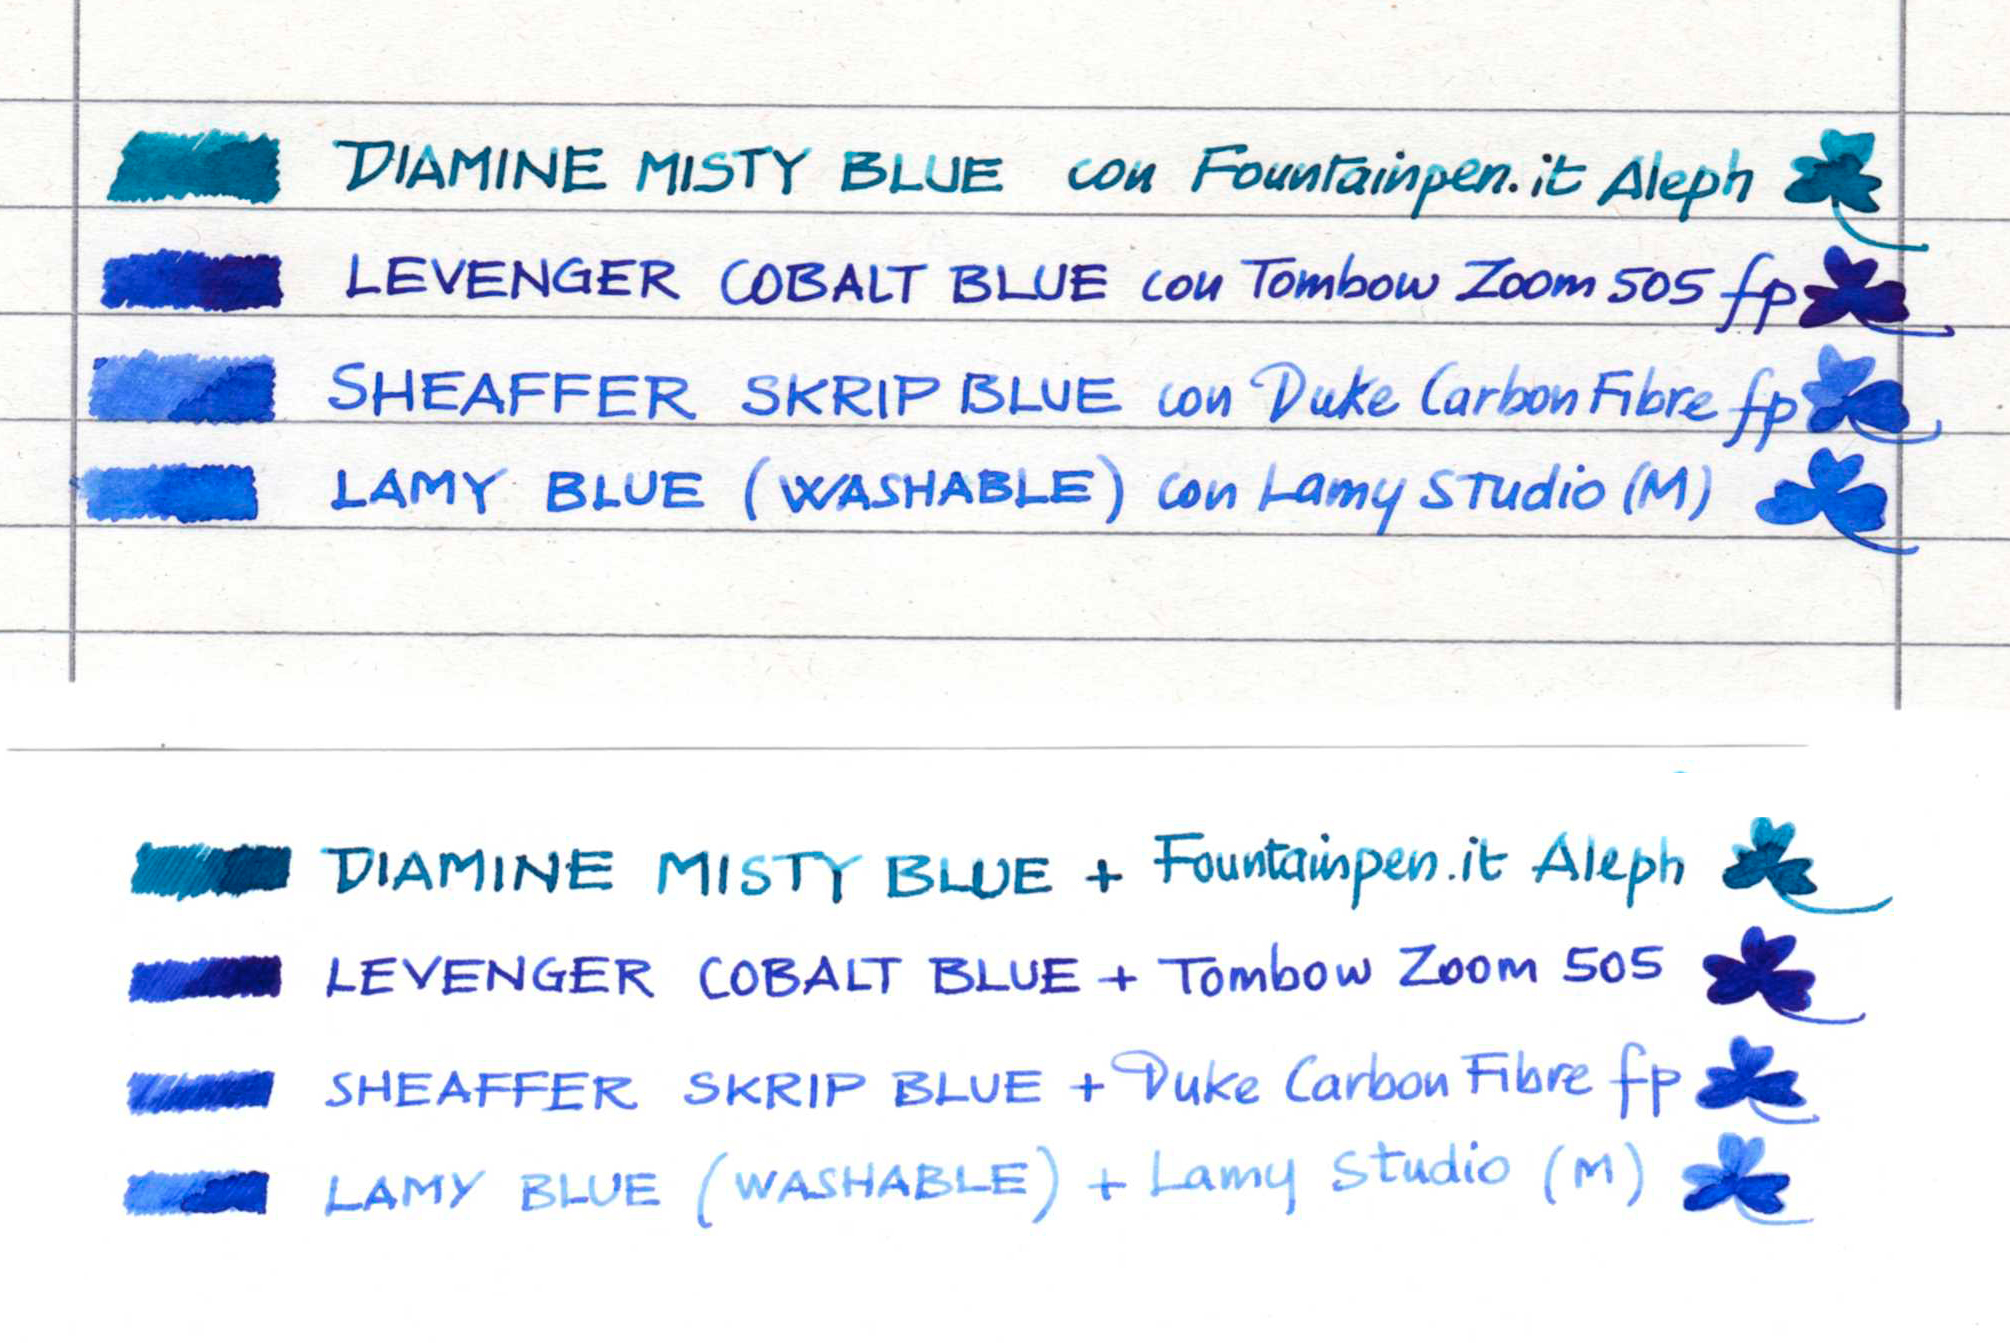 DIAMINE MISTY BLUE con Fountainpen.it Aleph
LEVENGER COBALT BLUE con Tombow Zoom 505 fp
SHEAFFER SKRIP BLUE con Duke Carbon Fibre fp
LAMY BLUE (WASHABLE) con Lamy Studio (M)
DIAMINE MISTY BLUE + Fountainpen.it Aleph
LEVENGER COBALT BLUE + Tombow Zoom 505
SHEAFFER SKRIP BLUE + Duke Carbon Fibre fp
LAMY BLUE (WASHABLE) + Lamy Studio (M)